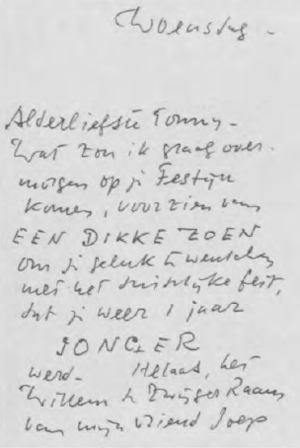 Woensdag -
Alderliefste Tonny -
Wat zou ik graag over-
morgen op je Festijn
komen, voorzien van
EEN DIKKE ZOEN
om je geluk te wenschen
met het feit,
dat je weer 1 jaar
JONGER
werd. - Helaas, het
Willem de Zwijger Raam
van mijn vriend Joep